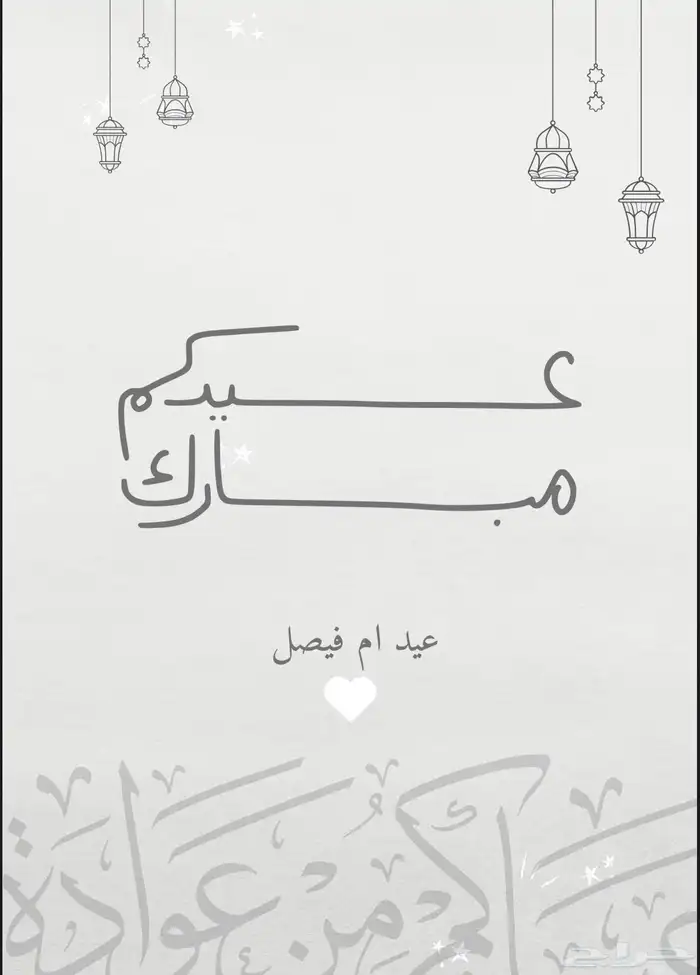 عيدكم
مبارك
عيد ام فيصل
عَساكُم مِن عَوادَة
حراج